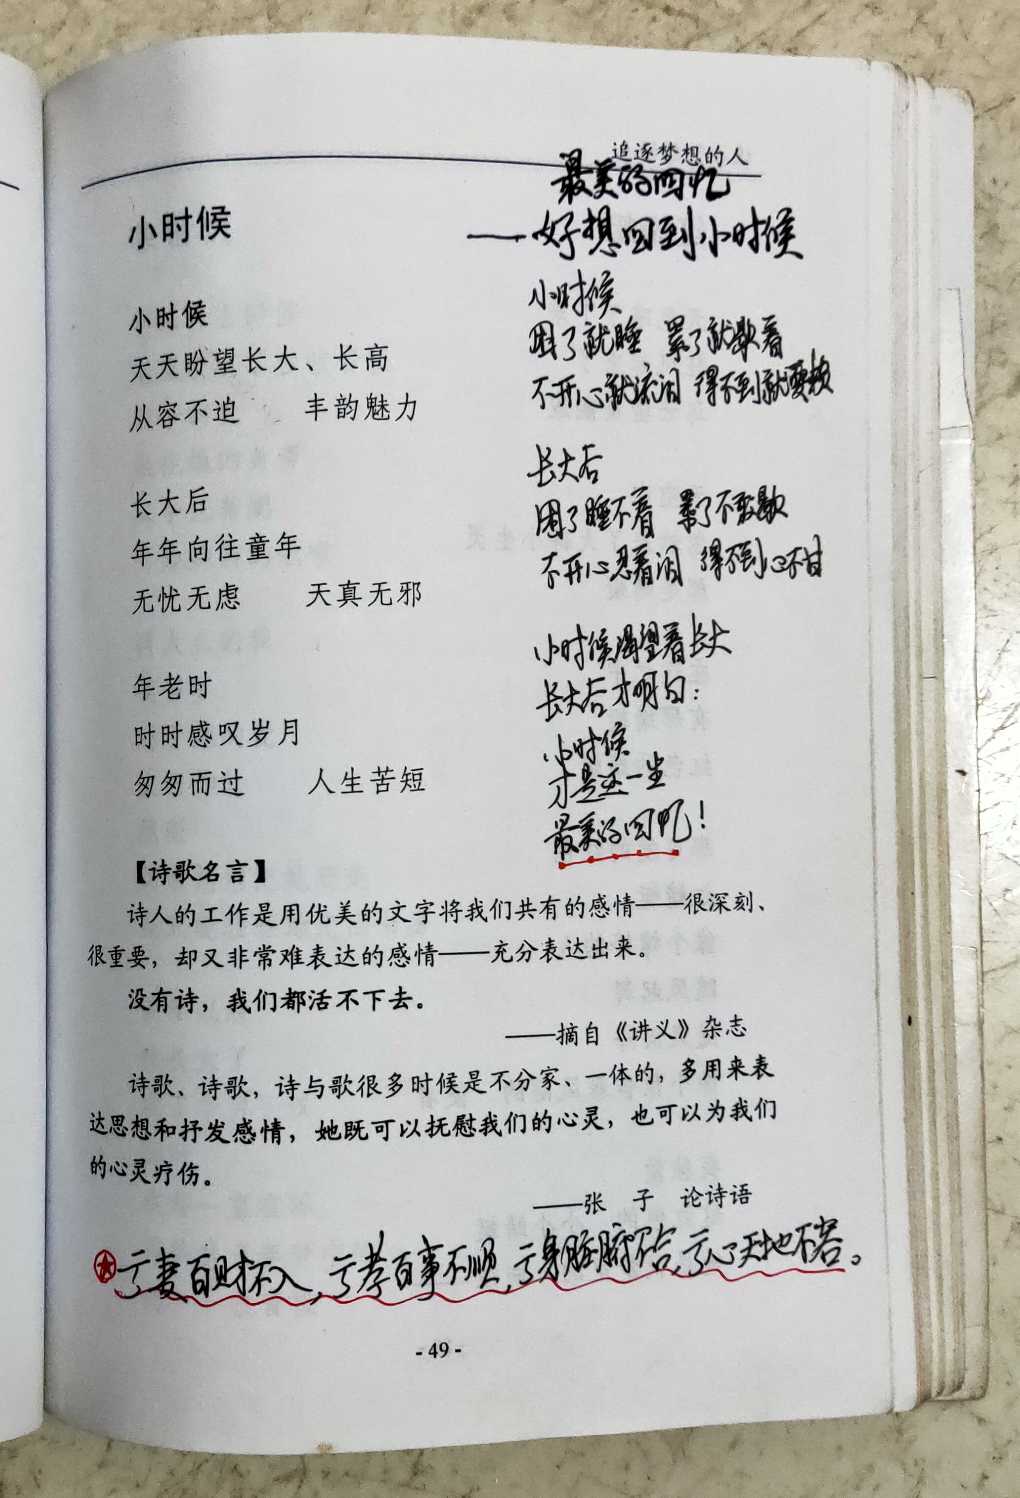 追逐梦想的人
最美的回忆
——好想回到小时候
小时候
小时候
天天盼望长大、长高
从容不迫 丰韵魅力
长大后
年年向往童年
无忧无虑 天真无邪
年老时
时时感叹岁月
匆匆而过 人生苦短
小时候
困了就睡 累了就歇着
不开心就流泪 得不到就耍赖
长大后
困了睡不着 累了不敢歇
不开心忍着泪 得不到心不甘
小时候渴望着长大
长大后才明白：
小时候
才是这一生
最美的回忆！
【诗歌名言】
诗人的工作是用优美的文字将我们共有的感情——很深刻、
很重要，却又非常难表达的感情——充分表达出来。
没有诗，我们都活不下去。
——摘自《讲义》杂志
诗歌、诗歌，诗与歌很多时候是不分家、一体的，多用来表
达思想和抒发感情，她既可以抚慰我们的心灵，也可以为我们
的心灵疗伤。
——张 子 论诗语
亏妻百财不入，亏孝百事不顺，亏身脏腑不合，亏心天地不容。
- 49 -